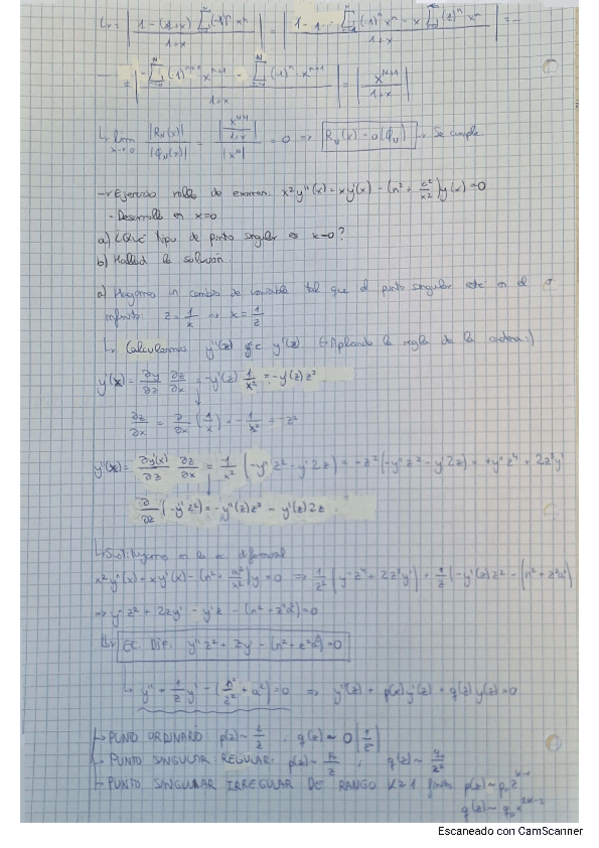 Lr = | 1-(1+x) Σ(-1)ⁿxⁿ / 1+x | = | 1-1· Σ(-1)ⁿxⁿ - x Σ(-1)ⁿxⁿ / 1+x | = ...
... = | -Σ(-1)ⁿ⁺¹xⁿ⁺¹ - Σ(-1)ⁿ·xⁿ⁺¹ / 1+x | = | x^(N+1) / 1+x |
↳ lim x→0 |R_N(x)| / |Φ_N(x)| = | x^(N+1) / 1+x | / |x^N| = 0 ⇒ R_N(x) = o(Φ_N) → Se cumple
→ Ejercicio de examen: x²y''(x) + xy'(x) - (n² + a²/x²) y(x) = 0
- Desarrollo en x=0
a) ¿Qué tipo de punto singular es x=0?
b) Hallad la solución.
a) Hagamos un cambio de variable tal que el punto singular esté en el
infinito: z = 1/x ⇒ x = 1/z
↳ Calculamos y''(x) e y'(x). (Aplicando la regla de la cadena:)
y'(x) = ∂y/∂z ∂z/∂x = -y'(z) 1/x² = -y'(z) z²
∂z/∂x = ∂/∂x (1/x) = -1/x² = -z²
y''(x) = ∂y'(x)/∂z ∂z/∂x = 1/x² (-y''z² - y'2z) = -z²(-y''z² - y'2z) = +y''z⁴ + 2z³y'
∂/∂z (-y'z²) = -y''(z)z² - y'(z)2z
↳ Sustituyamos en la ec diferencial
x²y''(x) + xy'(x) - (n² + a²/x²)y = 0 ⇒ 1/z² (y''z⁴ + 2z³y') + 1/z (-y'(z)z² - (n² + z²a²)
⇒ y''z² + 2zy' - y'z - (n² + z²a²) = 0
↳ EC. DIF: y''z² + zy' - (n² + z²a²) = 0
↳ y'' + 1/z y' - (n²/z² + a²) = 0 ⇒ y''(z) + p(z)y'(z) + q(z)y(z) = 0
→ PUNTO ORDINARIO p(z) ~ 2/z ; q(z) ~ O(1/z⁴)
→ PUNTO SINGULAR REGULAR: p(z) ~ p₀/z ; q(z) ~ q₀/z²
→ PUNTO SINGULAR IRREGULAR DE RANGO K≥1 p(z) ~ p₀ z^(k-1)
q(z) ~ q₀ z^(2k-2)
Escaneado con CamScanner